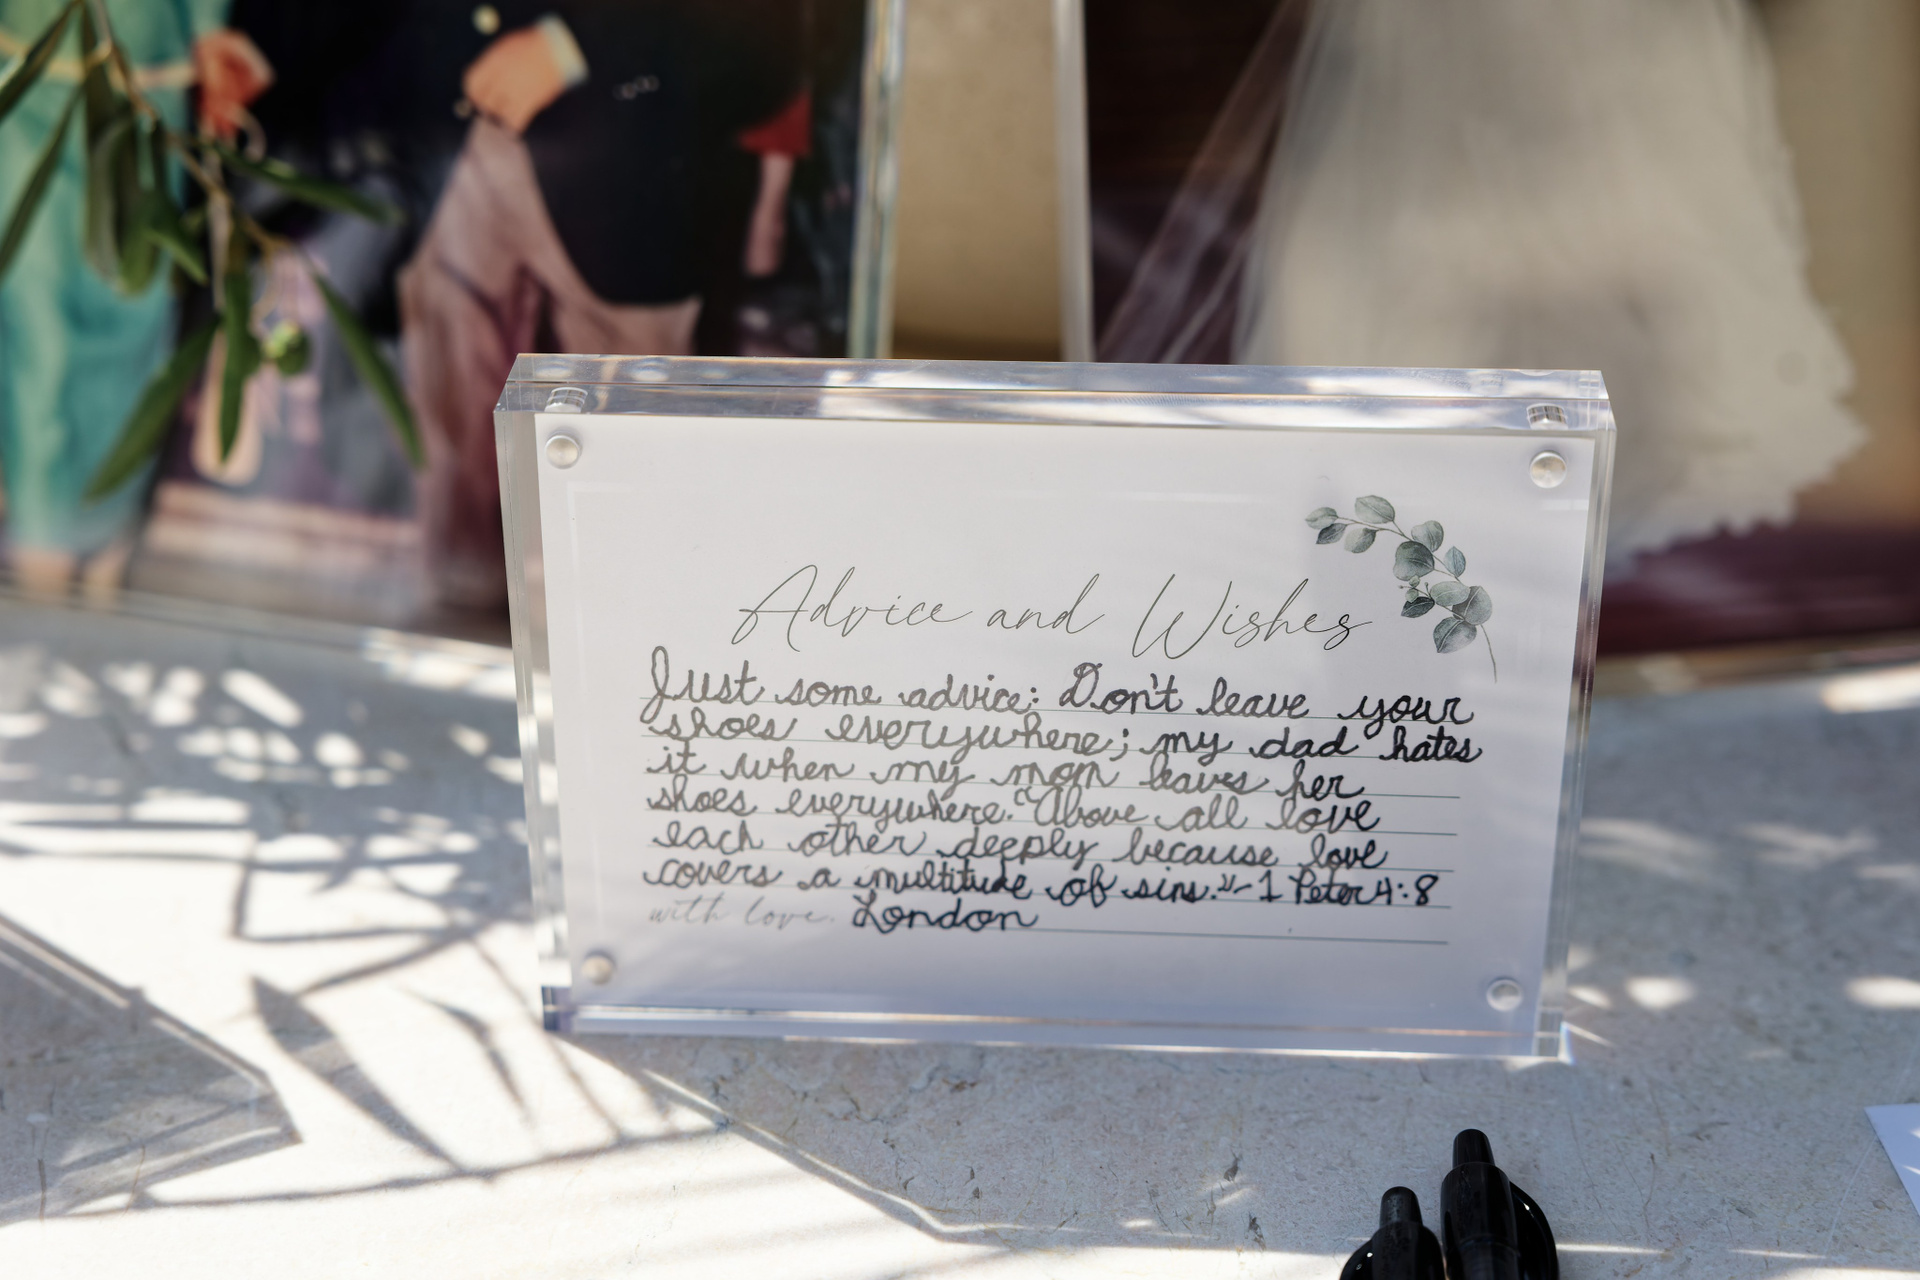 Advice and Wishes
Just some advice: Don't leave your
shoes everywhere; my dad hates
it when my mom leaves her
shoes everywhere. "Above all love
each other deeply because love
covers a multitude of sins." - 1 Peter 4:8
with love. London